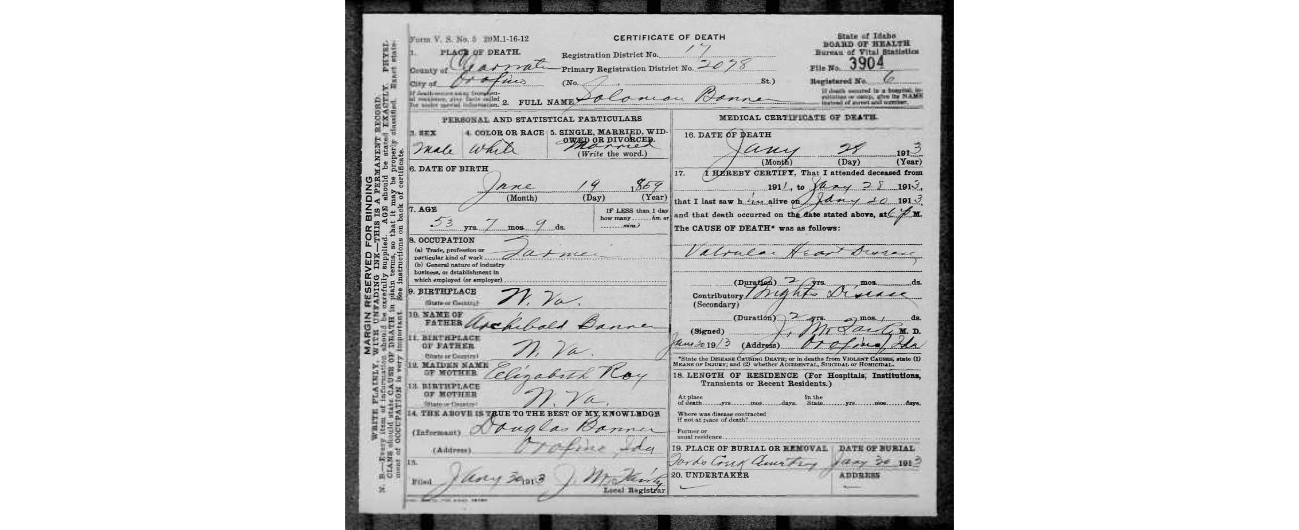 Form V. S. No. 5 20M.1-16-12
CERTIFICATE OF DEATH
State of Idaho
BOARD OF HEALTH
Bureau of Vital Statistics
File No. 3904
Registered No. 6
If death occurred in a hospital, institution or camp, give its NAME instead of street and number.
1. PLACE OF DEATH.
County of Clearwater
City of Orofino
If death occurs away from usual residence, give facts called for under special information.
Registration District No. 17
Primary Registration District No. 2098
(No. St.)
2. FULL NAME Solomon Bonner
MARGIN RESERVED FOR BINDING
WRITE PLAINLY, WITH UNFADING INK—THIS IS A PERMANENT RECORD.
N. B.—Every item of information should be carefully supplied. AGE should be stated EXACTLY. PHYSI-
CIANS should state CAUSE OF DEATH in plain terms, so that it may be properly classified. Exact state-
ment of OCCUPATION is very important. See instructions on back of certificate.
PERSONAL AND STATISTICAL PARTICULARS
3. SEX
Male
4. COLOR OR RACE
White
5. SINGLE, MARRIED, WID-
OWED OR DIVORCED
Married
(Write the word.)
6. DATE OF BIRTH
June 19 1859
(Month) (Day) (Year)
7. AGE
53 yrs. 7 mos. 9 ds.
IF LESS than 1 day
how many hrs. or
min.?
8. OCCUPATION
(a) Trade, profession or
particular kind of work Farmer
(b) General nature of industry
business, or establishment in
which employed (or employer)
9. BIRTHPLACE
(State or Country) W. Va.
10. NAME OF
FATHER Archibald Bonner
11. BIRTHPLACE
OF FATHER
(State or Country) W. Va.
12. MAIDEN NAME
OF MOTHER Elizabeth Roy
13. BIRTHPLACE
OF MOTHER
(State or Country) W. Va.
14. THE ABOVE IS TRUE TO THE BEST OF MY KNOWLEDGE
(Informant) Douglas Bonner
(Address) Orofino Ida
15.
Filed Jany 30 1913 J. M. Fairly
Local Registrar
MEDICAL CERTIFICATE OF DEATH.
16. DATE OF DEATH
Jany 28 1913
(Month) (Day) (Year)
17. I HEREBY CERTIFY, That I attended deceased from
1911, to Jany 28 1913,
that I last saw him alive on Jany 20 1913
and that death occurred on the date stated above, at 6 P M.
The CAUSE OF DEATH* was as follows:
Valvular Heart Disease
(Duration) 2 yrs. mos. ds.
Contributory Brights Disease
(Secondary)
(Duration) 2 yrs. mos. ds.
(Signed) J. M. Fairly M. D.
Jan 30 1913 (Address) Orofino Ida
*State the DISEASE CAUSING DEATH; or in deaths from VIOLENT CAUSES, state (1)
MEANS OF INJURY; and (2) whether ACCIDENTAL, SUICIDAL or HOMICIDAL.
18. LENGTH OF RESIDENCE (For Hospitals, Institutions,
Transients or Recent Residents.)
At place
of death yrs. mos. days.
In the
State yrs. mos. days.
Where was disease contracted
if not at place of death?
Former or
usual residence
19. PLACE OF BURIAL OR REMOVAL
Fords Creek Cemetery
DATE OF BURIAL
Jany 30 1913
20. UNDERTAKER
ADDRESS